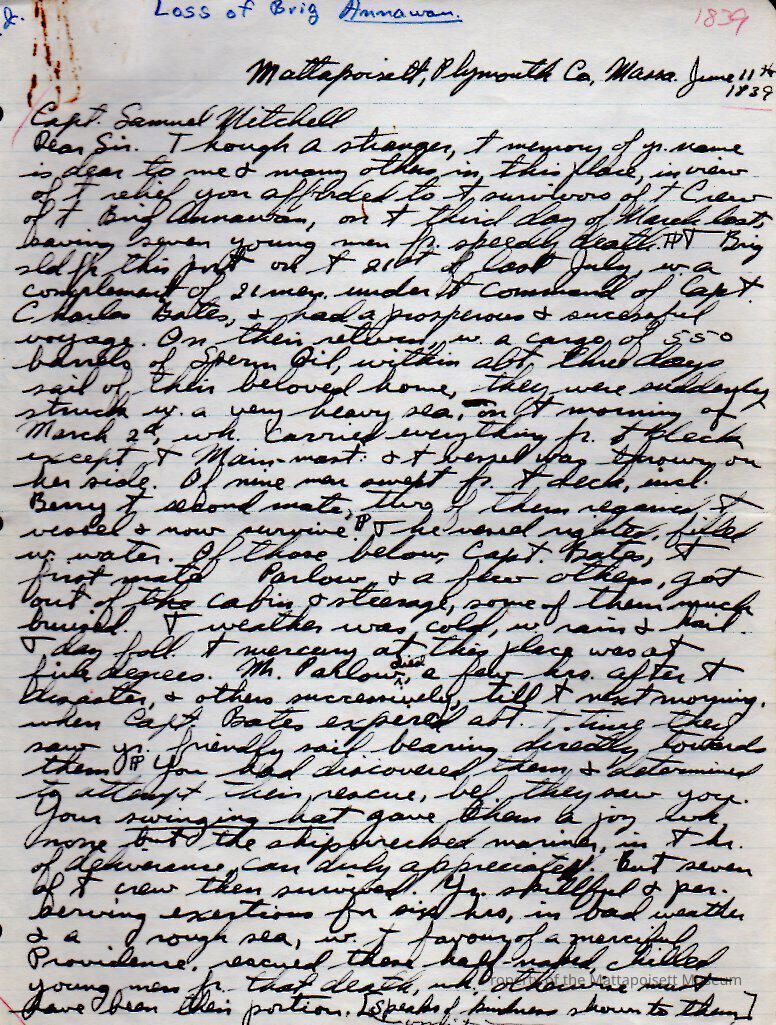 2.
Loss of Brig Annawan.
1839
Mattapoisett, Plymouth Co, Massa. June 11th
1839
Capt. Samuel Mitchell
Dear Sir. Though a stranger, t memory of yr. name
is dear to me & many others in this place, in view
of t relief you afforded to t survivors of t Crew
of t Brig Annawan, on t third day of March last,
saving seven young men fr. speedy death. ¶ T Brig
sld fr. this port on t 21st of last July, w. a
complement of 21 men. under t command of Capt.
Charles Bates, & had a prosperous & sucessful
voyage. On their return, w. a cargo of 550
barrels of Sperm Oil, within abt, three days
sail of their beloved home, they were suddenly
struck w. a very heavy sea, on t morning of
March 2d, wh. carried everything fr. t deck
except t Main-mast: & t vessel was thrown on
her side. Of nine men swept fr. t deck, incl.
Berry t second mate, two of them regained t
vessel & now survive. ¶ The vessel righted, filled
w. water. Of those below, Capt. Bates, t
first mate Parlow, & a few others, got
out of the cabin & steerage, some of them much
bruised. T weather was cold, w. rain & hail.
T day foll. t mercury at this place was at
five degrees. Mr. Parlow died, a few hrs. after t
disaster, & others successively, till t next morning,
when Capt Bates expered abt. t time they
saw yr. friendly sail bearing directly towards
them. ¶ You had discovered them & determined
to attempt their rescue, bef. they saw you.
Your swinging hat gave them a joy wh.
none but the shipwrecked mariner, in t hr.
of deliverance, can duly appreciate. But seven
of t crew then survived. Yr. skillful & per-
serving exertions for six hrs, in bad weather
& a rough sea, w. t favour of a merciful
Providence, rescued these half-naked, chilled
young men fr. that death, wh.
have been their portion. [Speaks of kindness shown to them]
Property of the Mattapoisett Museum